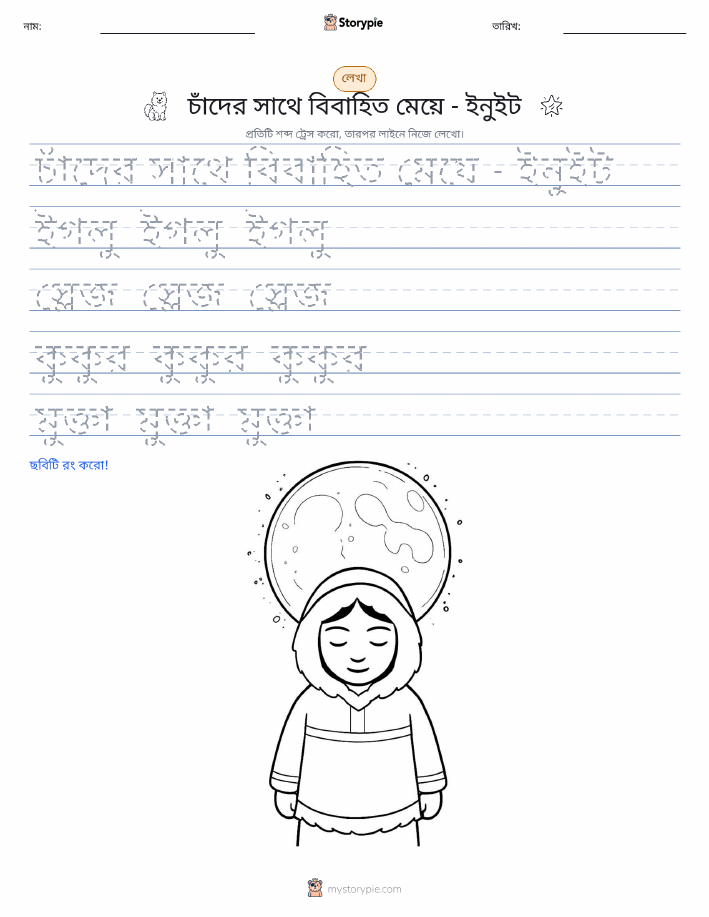 নাম:
Storypie
তারিখ:
লেখা
চাঁদের সাথে বিবাহিত মেয়ে - ইনুইট
প্রতিটি শব্দ ট্রেস করো, তারপর লাইনে নিজে লেখো।
চাঁদের সাথে বিবাহিত মেয়ে - ইনুইট
ইগলু ইগলু ইগলু
স্লেজ স্লেজ স্লেজ
কুকুর কুকুর কুকুর
মুক্তা মুক্তা মুক্তা
ছবিটি রং করো!
mystorypie.com